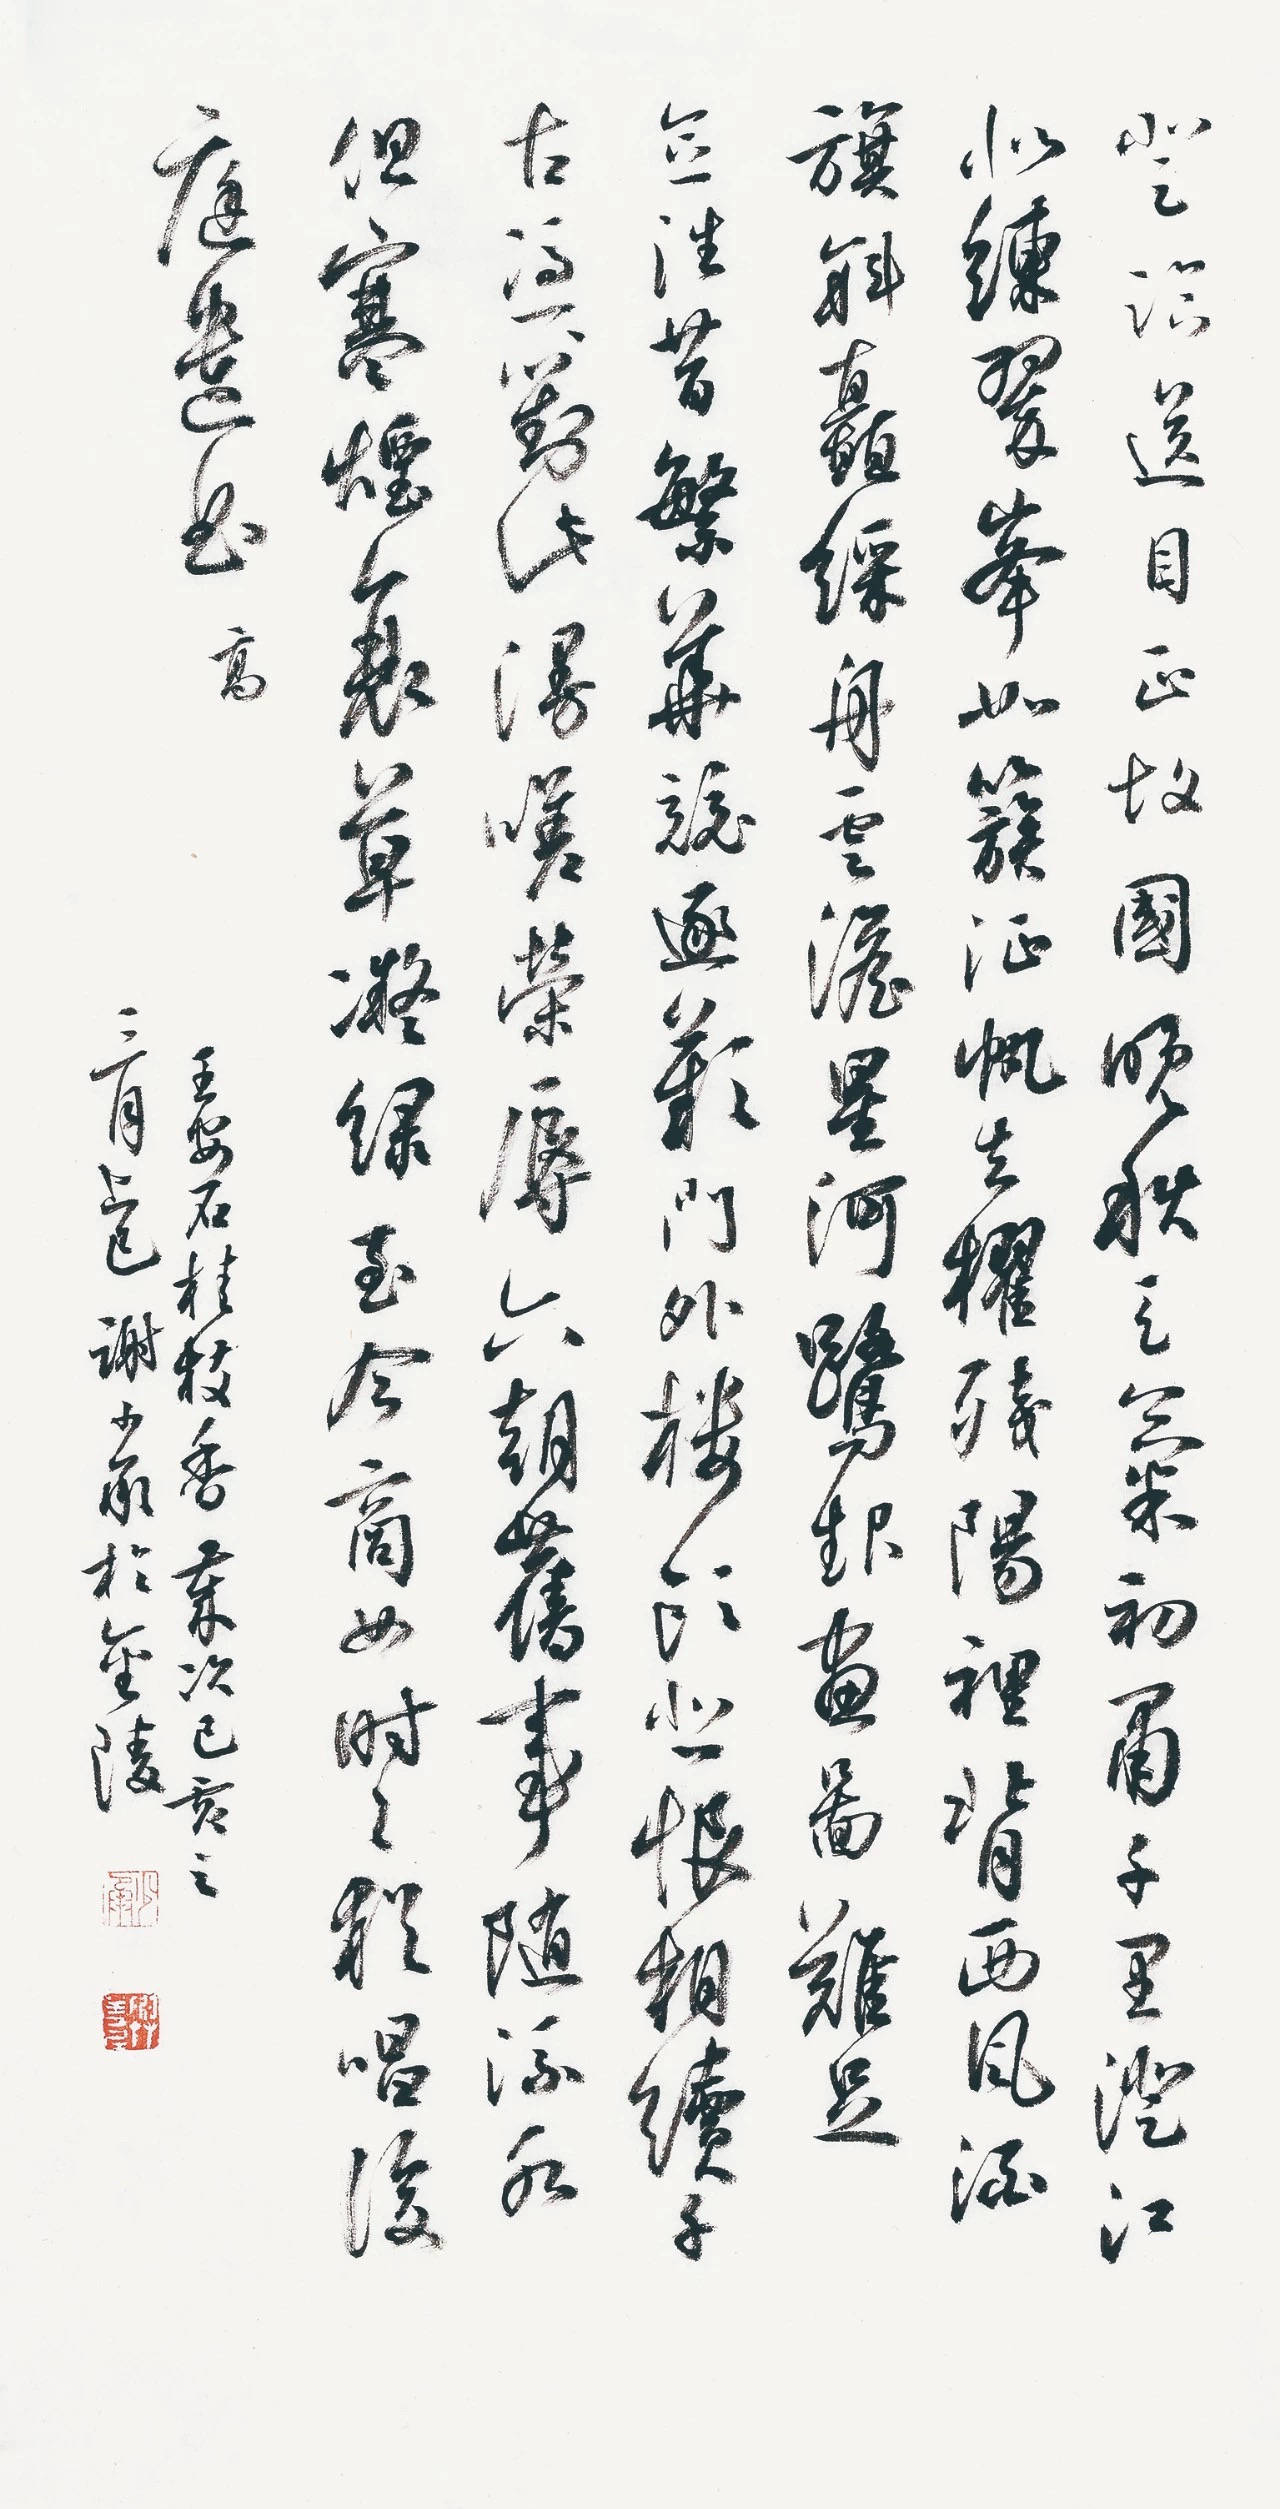 登臨送目正故國晚秋天氣初肅千里澄江
似練翠峯如簇征帆去櫂殘陽裡背西風酒
旗斜矗綵舟雲澹星河鷺起畫圖難足
念往昔繁華競逐歎門外樓頭悲恨相續千
古憑高對此漫嗟榮辱六朝舊事隨流水
但寒煙衰草凝綠至今商女時々猶唱後
庭遺曲 高
王安石桂枝香 歲次己亥之
三月上巳 謝少承於金陵